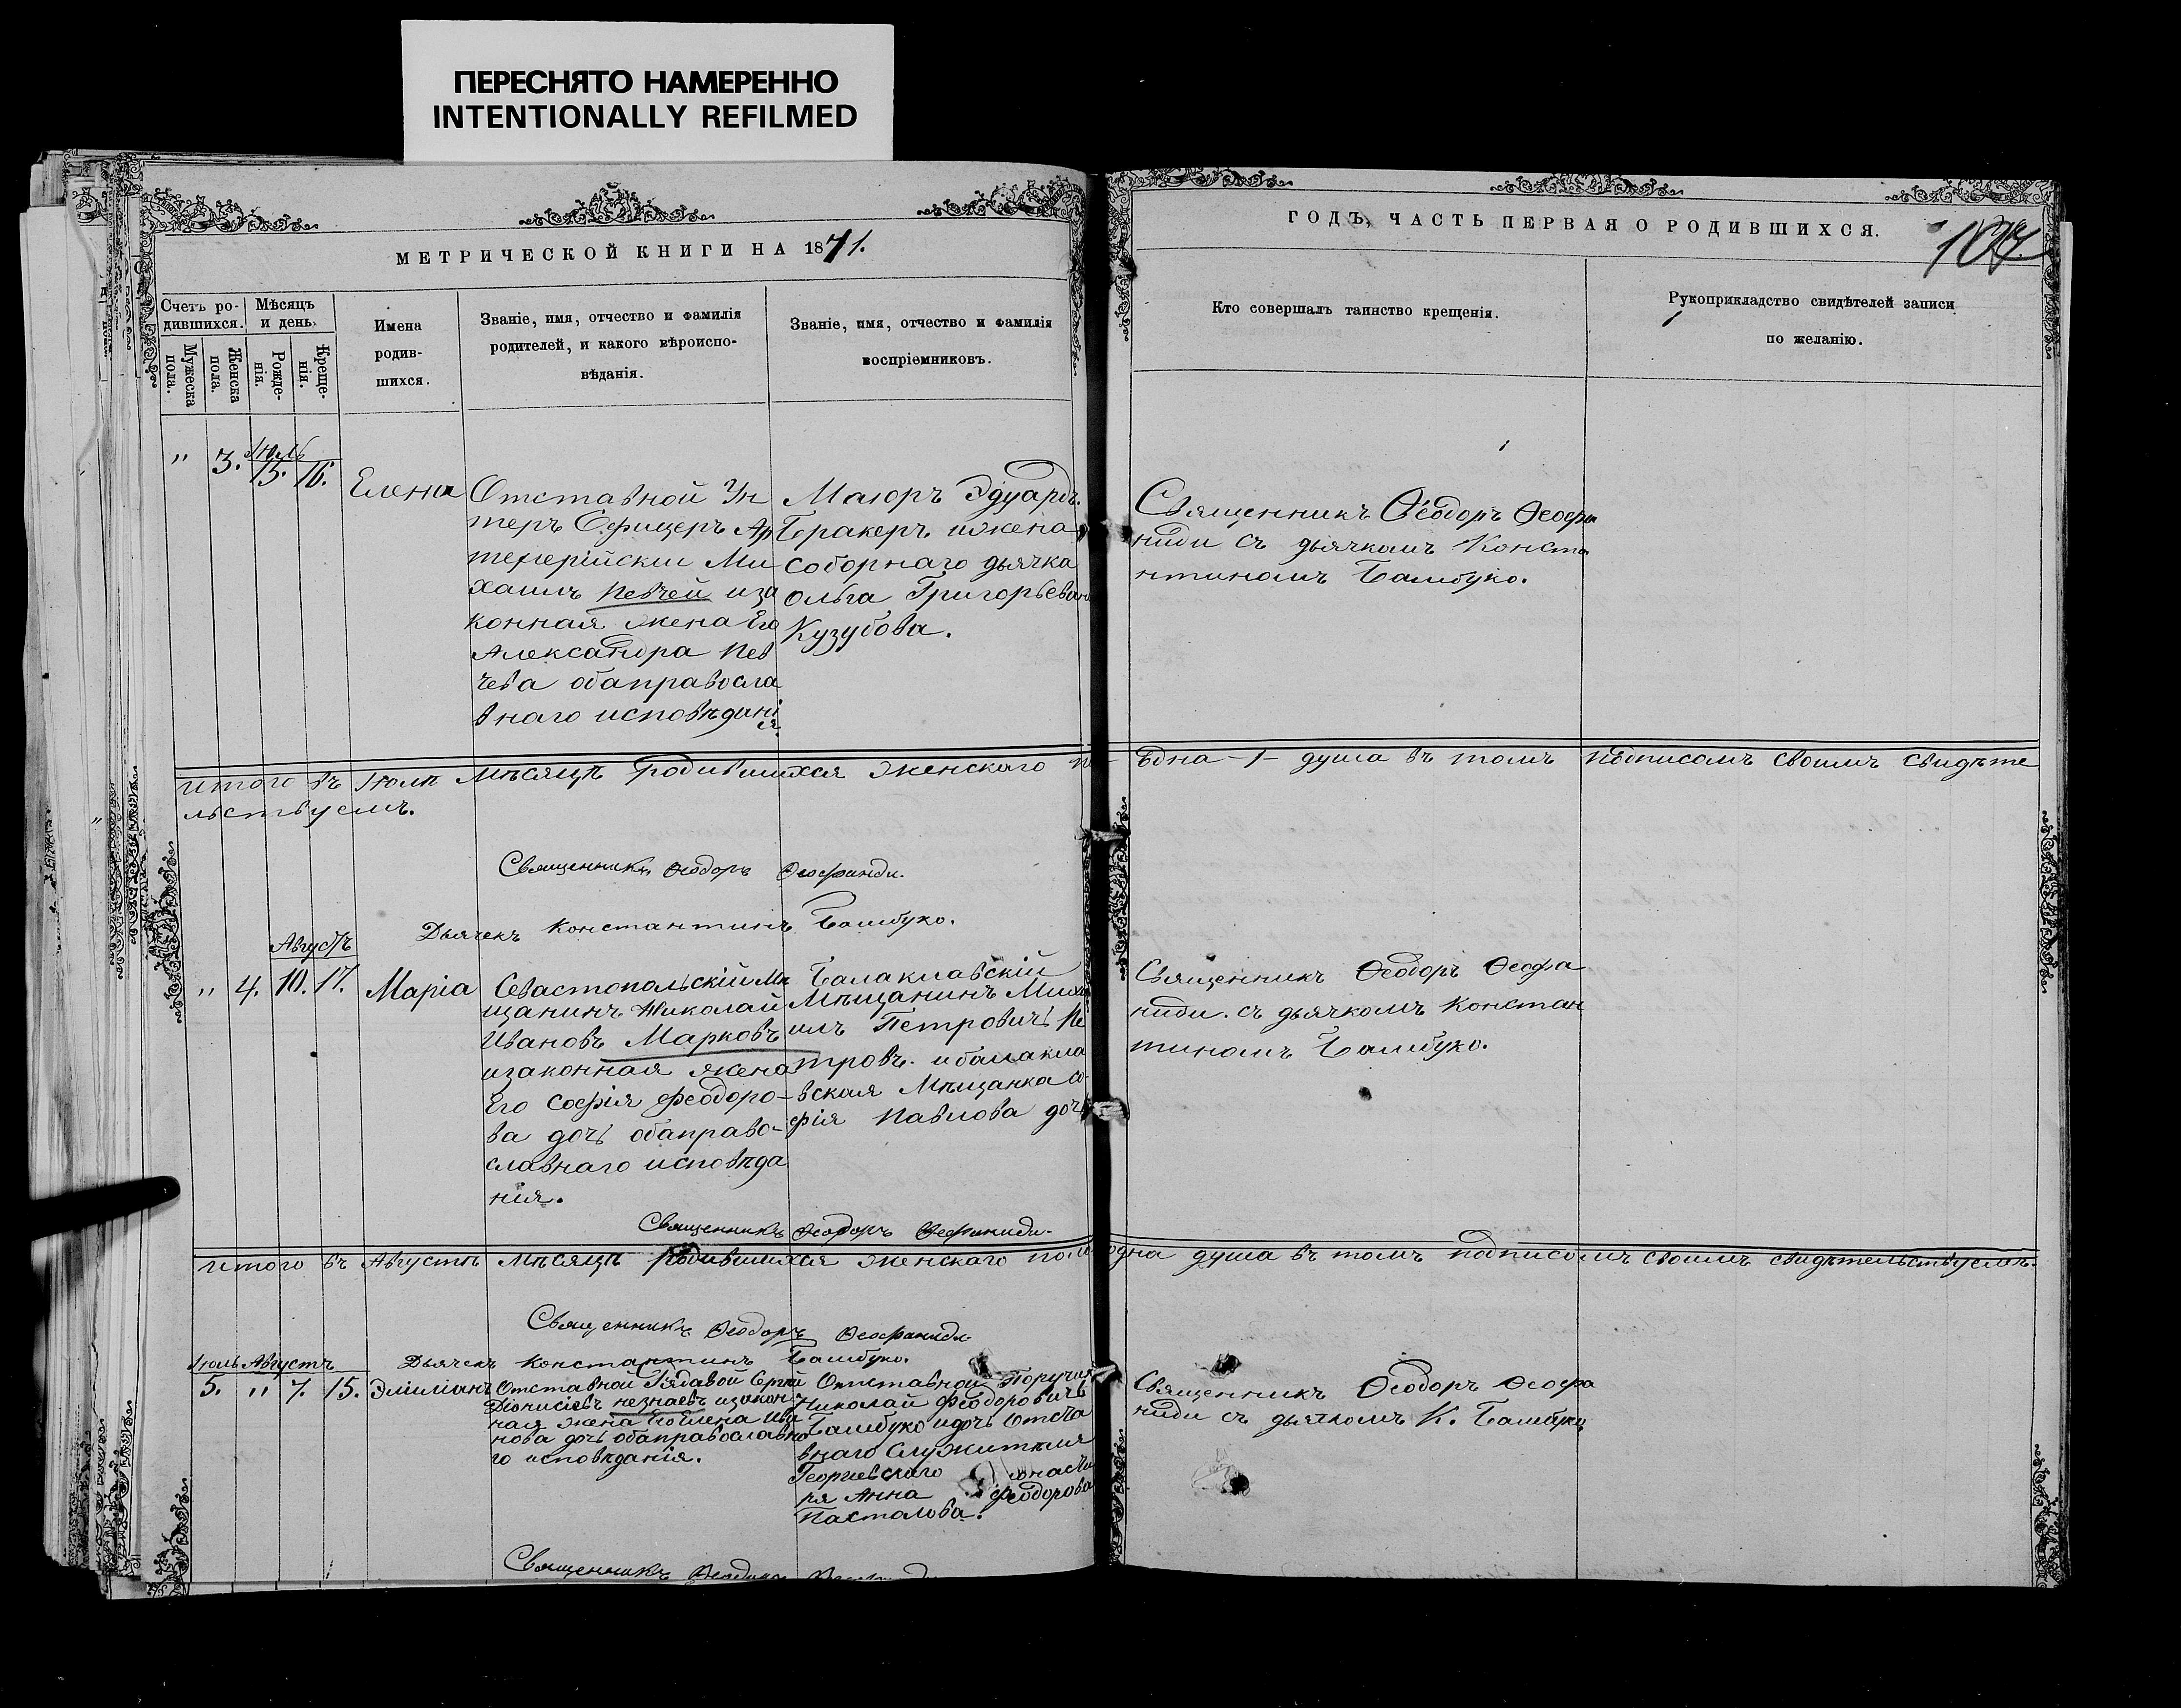 ПЕРЕСНЯТО НАМЕРЕННО
INTENTIONALLY REFILMED
МЕТРИЧЕСКОЙ КНИГИ НА 1871.
Счетъ ро-
дившихся.
Мужеска
пола.
Женска
пола.
Мѣсяцъ
и день.
Рожде-
нія.
Креще-
нія.
Имена
родив-
шихся.
Званіе, имя, отчество и фамилія
родителей, и какого вѣроиспо-
вѣданія.
Званіе, имя, отчество и фамилія
воспріемниковъ.
ГОДЪ, ЧАСТЬ ПЕРВАЯ О РОДИВШИХСЯ.
Кто совершалъ таинство крещенія.
Рукоприкладство свидѣтелей записи
по желанію.
Іюль
" 3. 15. 16.
Елена
Отставной Ун
теръ Офицеръ Ар
Ми
хаилъ Певчей иза
конная жена Его
Александра Пев
чева обаправосла
внаго исповѣдані
я.
Маіоръ Эдуардъ
Бракеръ ижена
соборнаго дьячка
Ольга Григорьевна
Кузубова.
Священникъ Ѳеодоръ Ѳеофа
ниди съ дьячкомъ Конста
нтиномъ Бамбуко.
итого въ Іюлѣ Мѣсяцѣ родившихся женскаго по- Една -1- душа въ томъ подписомъ своимъ свидѣте
льствуемъ.
Священникъ Ѳеодоръ Ѳеофаниди.
Дьячекъ Константинъ Бамбуко.
Августъ
" 4. 10. 17.
Маріа
Севастопольскій Мѣ
щанинъ Николай
Ивановъ Марковъ
изаконная жена
Его Софія Феодоро-
ва дочь обаправо-
славнаго исповѣда
нія.
Балаклавскій
Мѣщанинъ Миха
илъ Петровичъ Пе
тровъ. и балакла
вская Мѣщанка Со-
фія Павлова дочь
Священникъ Ѳеодоръ Ѳеофа
ниди. съ дьячкомъ Констан
тиномъ Бамбуко.
Священникъ Ѳеодоръ Ѳеофаниди.
итого въ Августѣ Мѣсяцѣ родившихся женскаго пола одна душа въ томъ подписомъ своимъ свидѣтельствуемъ.
Священникъ Ѳеодоръ Ѳеофаниди.
Дьячекъ Константинъ Бамбуко.
Іюль Августъ
5. " 7. 15.
Эміліанъ
Отставной Рядавой Сергѣй
Діонисіевъ незнаевъ изакон-
ная жена Его Елена Ива
нова дочь обаправославно
го исповѣданія.
Отставной Поручикъ
Николай Феодоровичъ
Бамбуко и дочь Отста
внаго Служителя
Георгіевскаго
ря Анна Феодорова
Пасталова.
Священникъ Ѳеодоръ Ѳеофа
ниди съ дьячкомъ К. Бамбуко
Священникъ